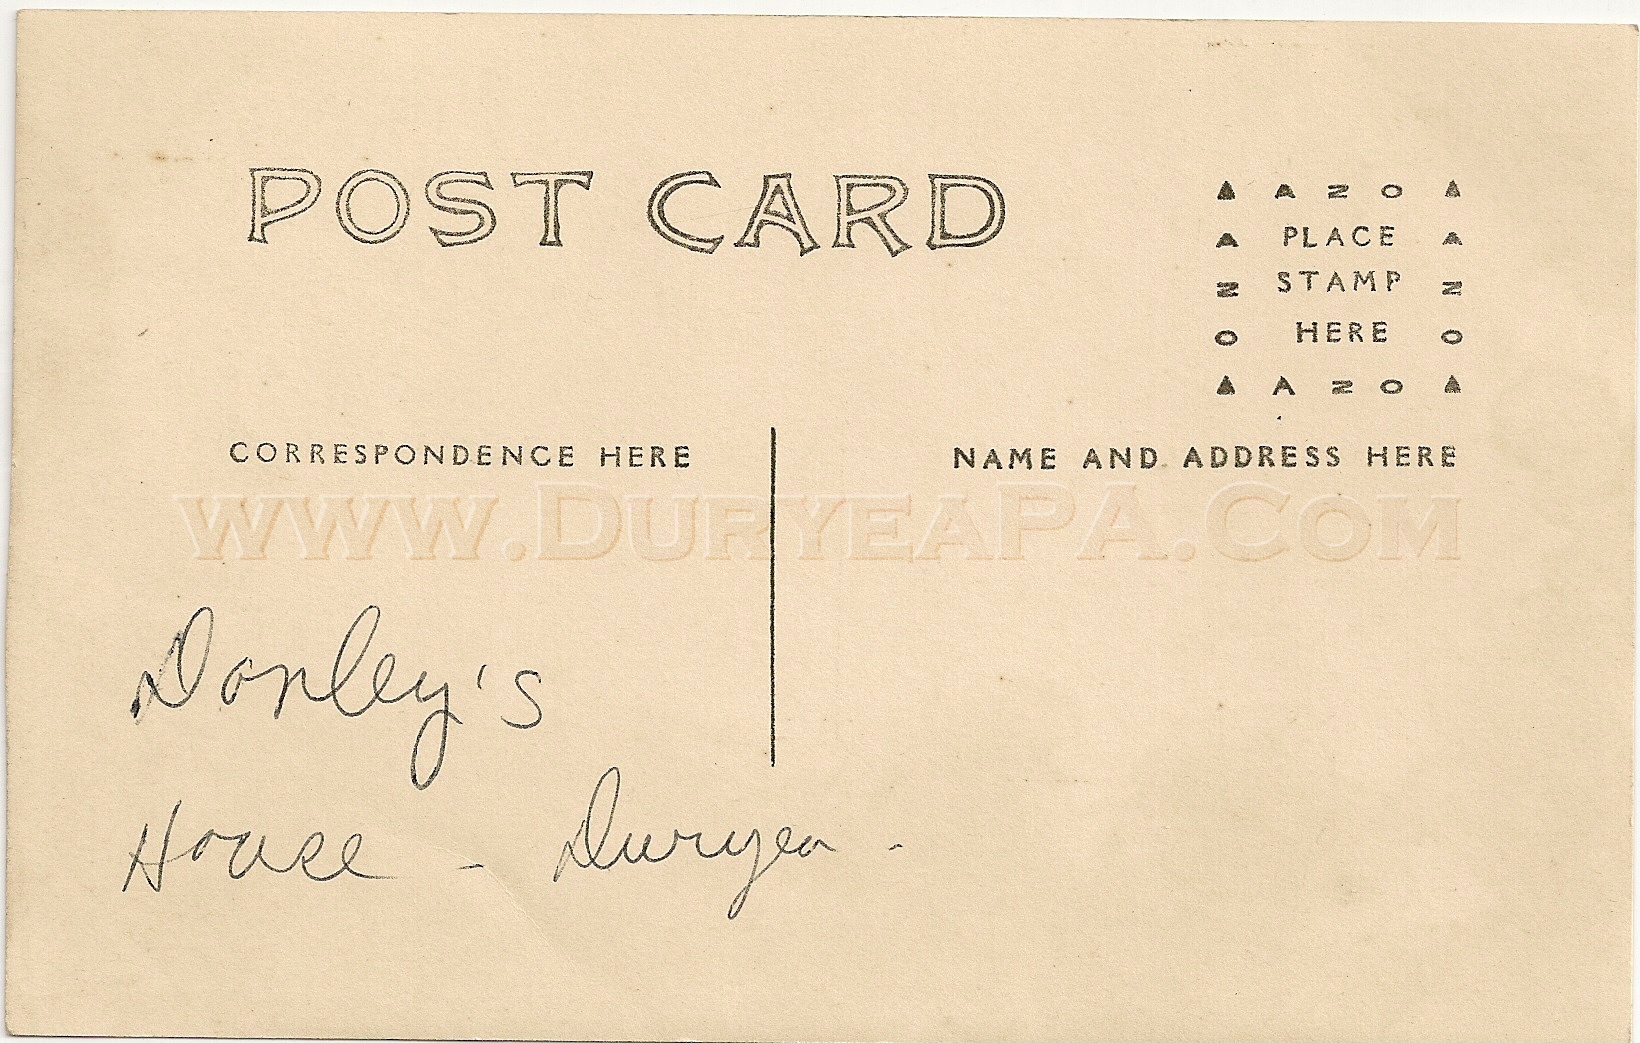 POST CARD
▲ A Z O ▲
A PLACE A
Z STAMP Z
O HERE O
▲ A Z O ▲
CORRESPONDENCE HERE
NAME AND ADDRESS HERE
www.DuryeaPA.Com
Donley's
House - Duryea -